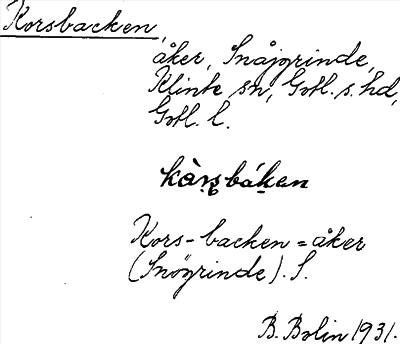 Korsbacken,
åker, Snåjgrinde,
Klinte sn, Gotl. s. hd,
Gotl. l.
kàrsbáken
Kors-backen = åker
(Snögrinde). S.
B. Bolin 1931.